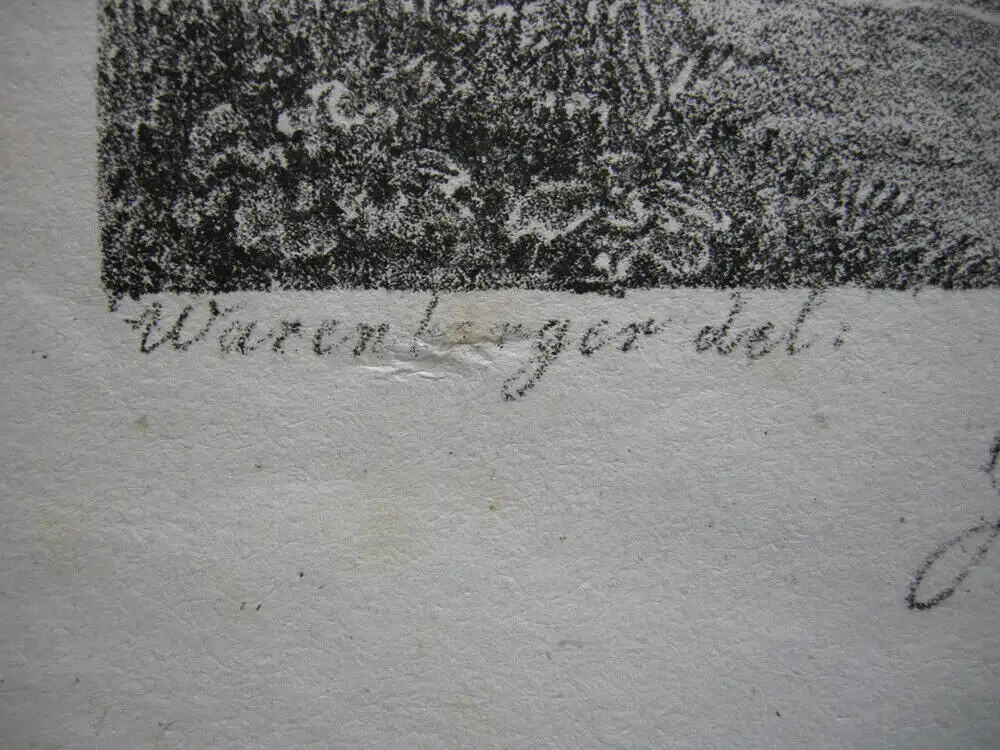 Warenberger del: